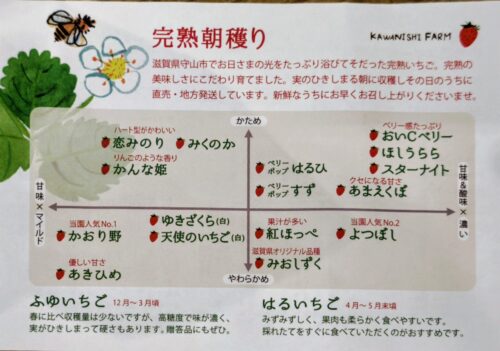 完熟朝穫り
KAWANISHI FARM
滋賀県守山市でお日さまの光をたっぷり浴びてそだった完熟いちご。完熟の
美味しさにこだわり育てました。実のひきしまる朝に収穫しその日のうちに
直売・地方発送しています。新鮮なうちにお早くお召し上がりくださいませ。
かため
ハート型がかわいい
恋みのり
みくのか
りんごのような香り
かんな姫
ベリー感たっぷり
おいCベリー
ほしうらら
スターナイト
ベリーポップ はるひ
ベリーポップ すず
クセになる甘さ
あまえくぼ
甘味×マイルド
甘味&酸味×濃い
当園人気No.1
かおり野
ゆきざくら(白)
天使のいちご(白)
果汁が多い
紅ほっぺ
当園人気No.2
よつぼし
優しい甘さ
あきひめ
滋賀県オリジナル品種
みおしずく
やわらかめ
ふゆいちご 12月〜3月頃
春に比べ収穫量は少ないですが、高糖度で味が濃く、
実がひきしまって硬さもあります。贈答品にもぜひ。
はるいちご 4月〜5月末頃
みずみずしく、果肉も柔らかく食べやすいです。
採れたてをすぐに食べていただくのがおすすめです。